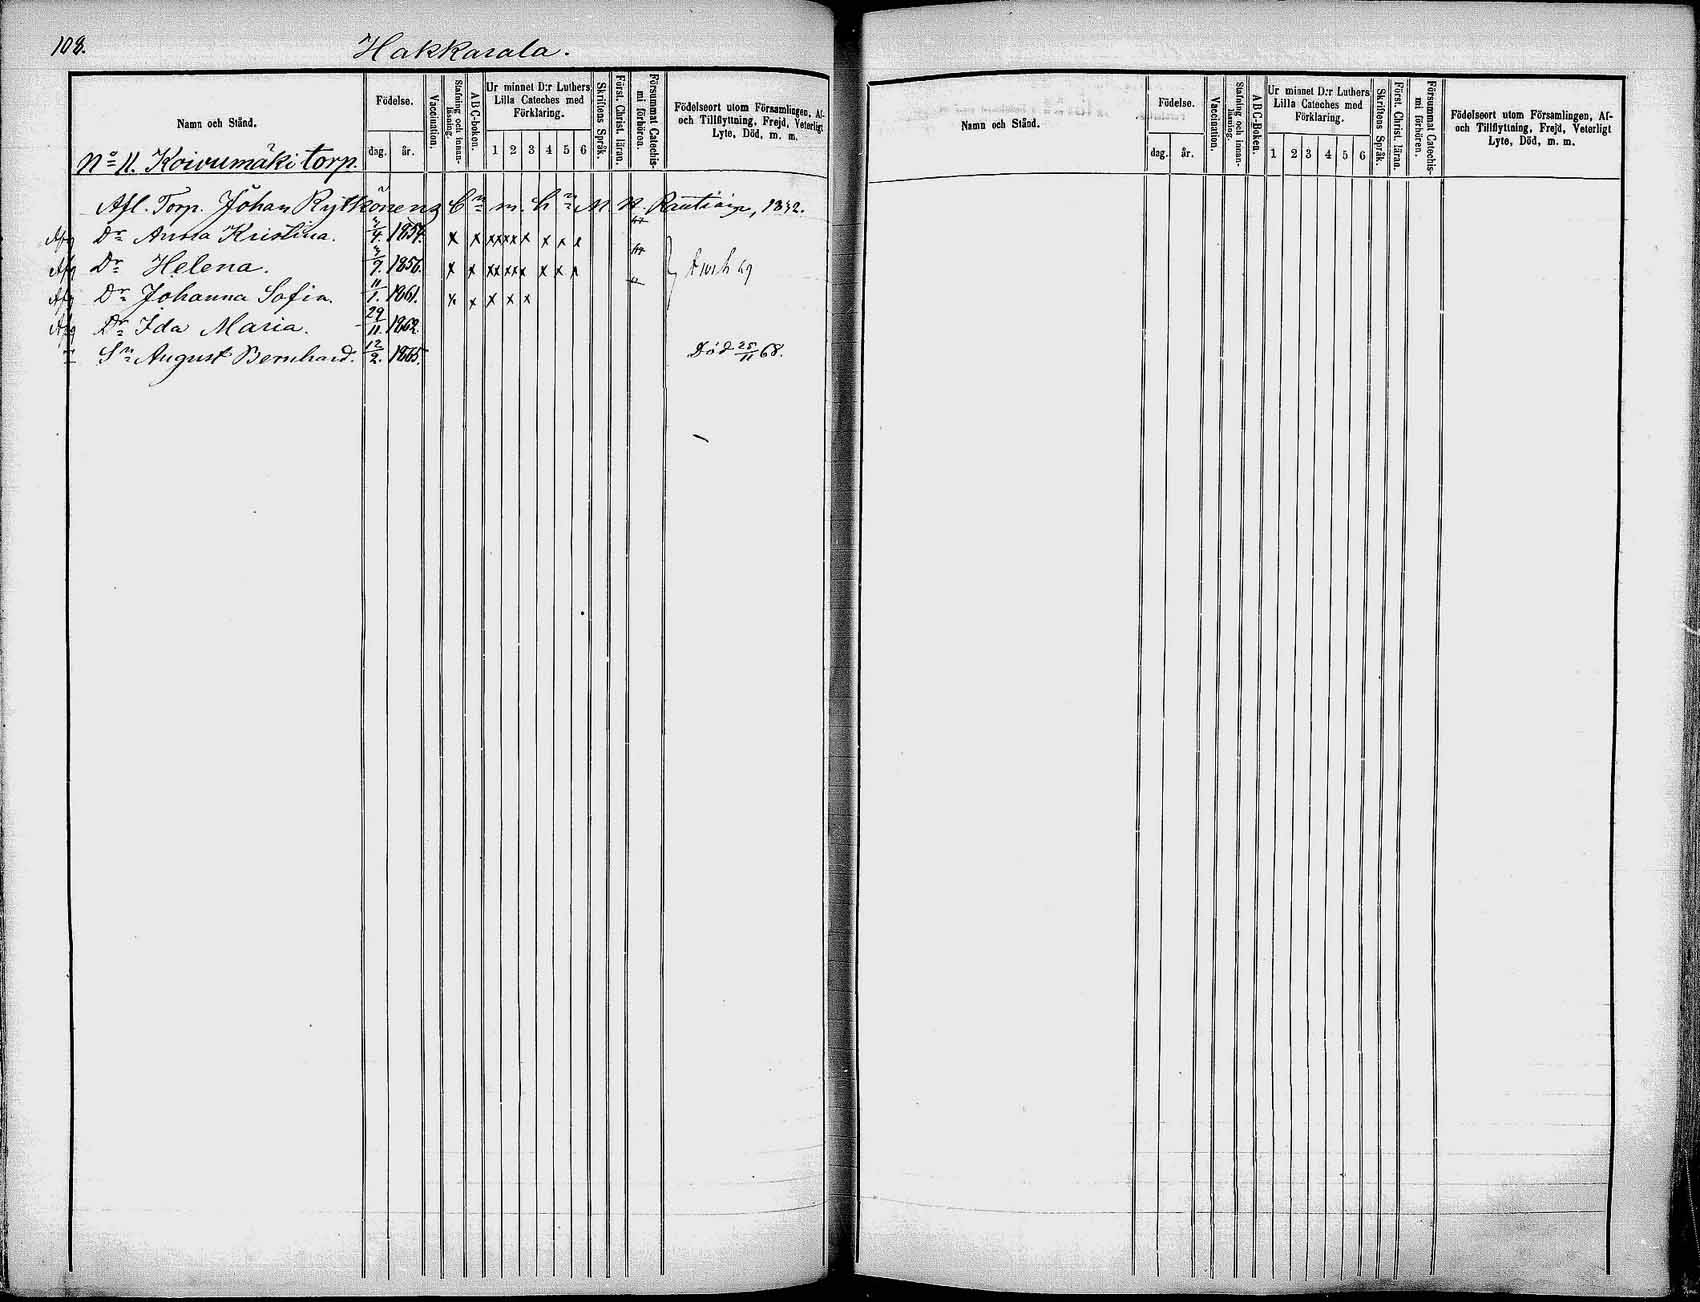 108.
Hakkarala.
Namn och Stånd.
Födelse.
dag. år.
Vaccination.
Stafning och innan-läsning.
ABC-boken.
Ur minnet D:r Luthers Lilla Cateches med Förklaring.
1 2 3 4 5 6
Skriftens Språk.
Först. Christ. läran.
Försummat Catechis-mi förhören.
Födelseort utom Församlingen, Af- och Tillflyttning, Frejd, Veterligt Lyte, Död, m. m.
No 11. Koivumäki torp.
Afl. Torp. Johan Rytkönens
Dr Anna Kristina. 1854.
Dr Helena. 1856.
Dr Johanna Sofia. 11/1. 1861.
Dr Ida Maria. 29/11. 1862.
Sn August Bernhard. 12/2. 1865. Död 25/11 68.
Namn och Stånd.
Födelse.
dag. år.
Vaccination.
Stafning och innan-läsning.
ABC-Boken.
Ur minnet D:r Luthers Lilla Cateches med Förklaring.
1 2 3 4 5 6
Skriftens Språk.
Först. Christ. läran.
Försummat Catechis-mi förhören.
Födelseort utom Församlingen, Af- och Tillflyttning, Frejd, Veterligt Lyte, Död, m. m.